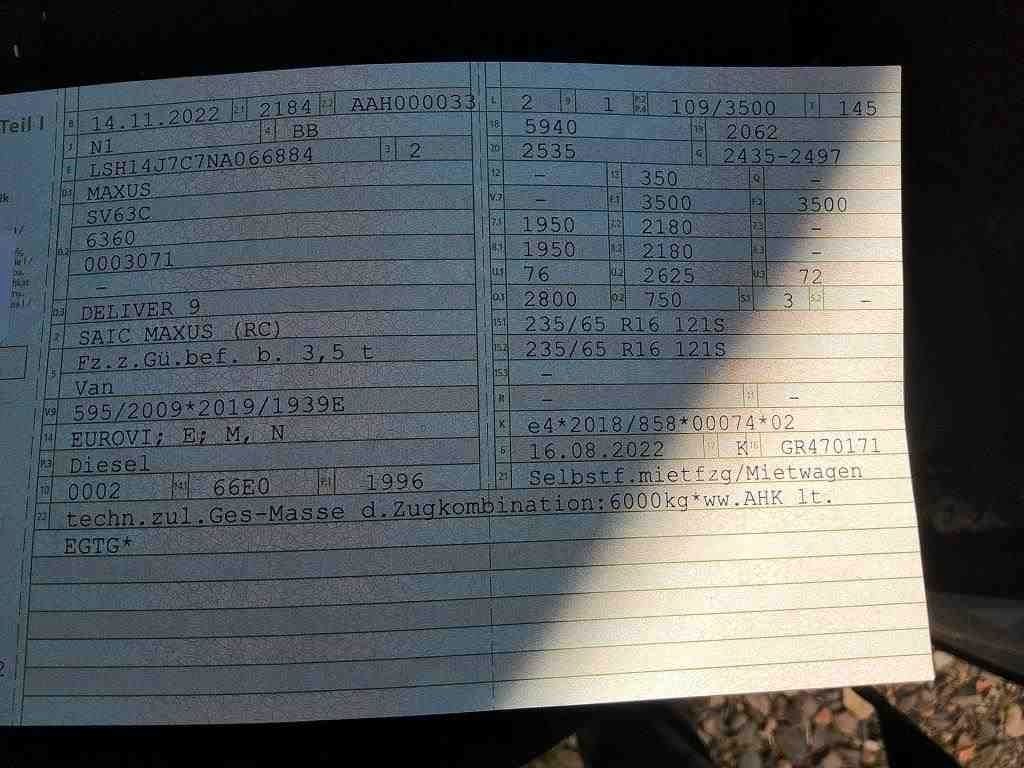 Teil I
B 14.11.2022 2.1 2184 2.2 AAH000033
J N1 4 BB
E LSH14J7C7NA066884 3 2
D.1 MAXUS
D.2 SV63C
6360
0003071
–
D.3 DELIVER 9
2 SAIC MAXUS (RC)
5 Fz.z.Gü.bef. b. 3,5 t
Van
V.9 595/2009*2019/1939E
14 EUROVI; E; M, N
P.3 Diesel
10 0002 14.1 66E0 P.1 1996
L 2 9 1 P.2 P.4 109/3500 T 145
18 5940 19 2062
20 2535 G 2435-2497
12 – 13 350 Q –
V.7 – F.1 3500 F.2 3500
7.1 1950 7.2 2180 7.3 –
8.1 1950 8.2 2180 8.3 –
U.1 76 U.2 2625 U.3 72
O.1 2800 O.2 750 S.1 3 S.2 –
15.1 235/65 R16 121S
15.2 235/65 R16 121S
15.3 –
R – 11 –
K e4*2018/858*00074*02
6 16.08.2022 17 K 16 GR470171
21 Selbstf.mietfzg/Mietwagen
22 techn.zul.Ges-Masse d.Zugkombination:6000kg*ww.AHK lt.
EGTG*